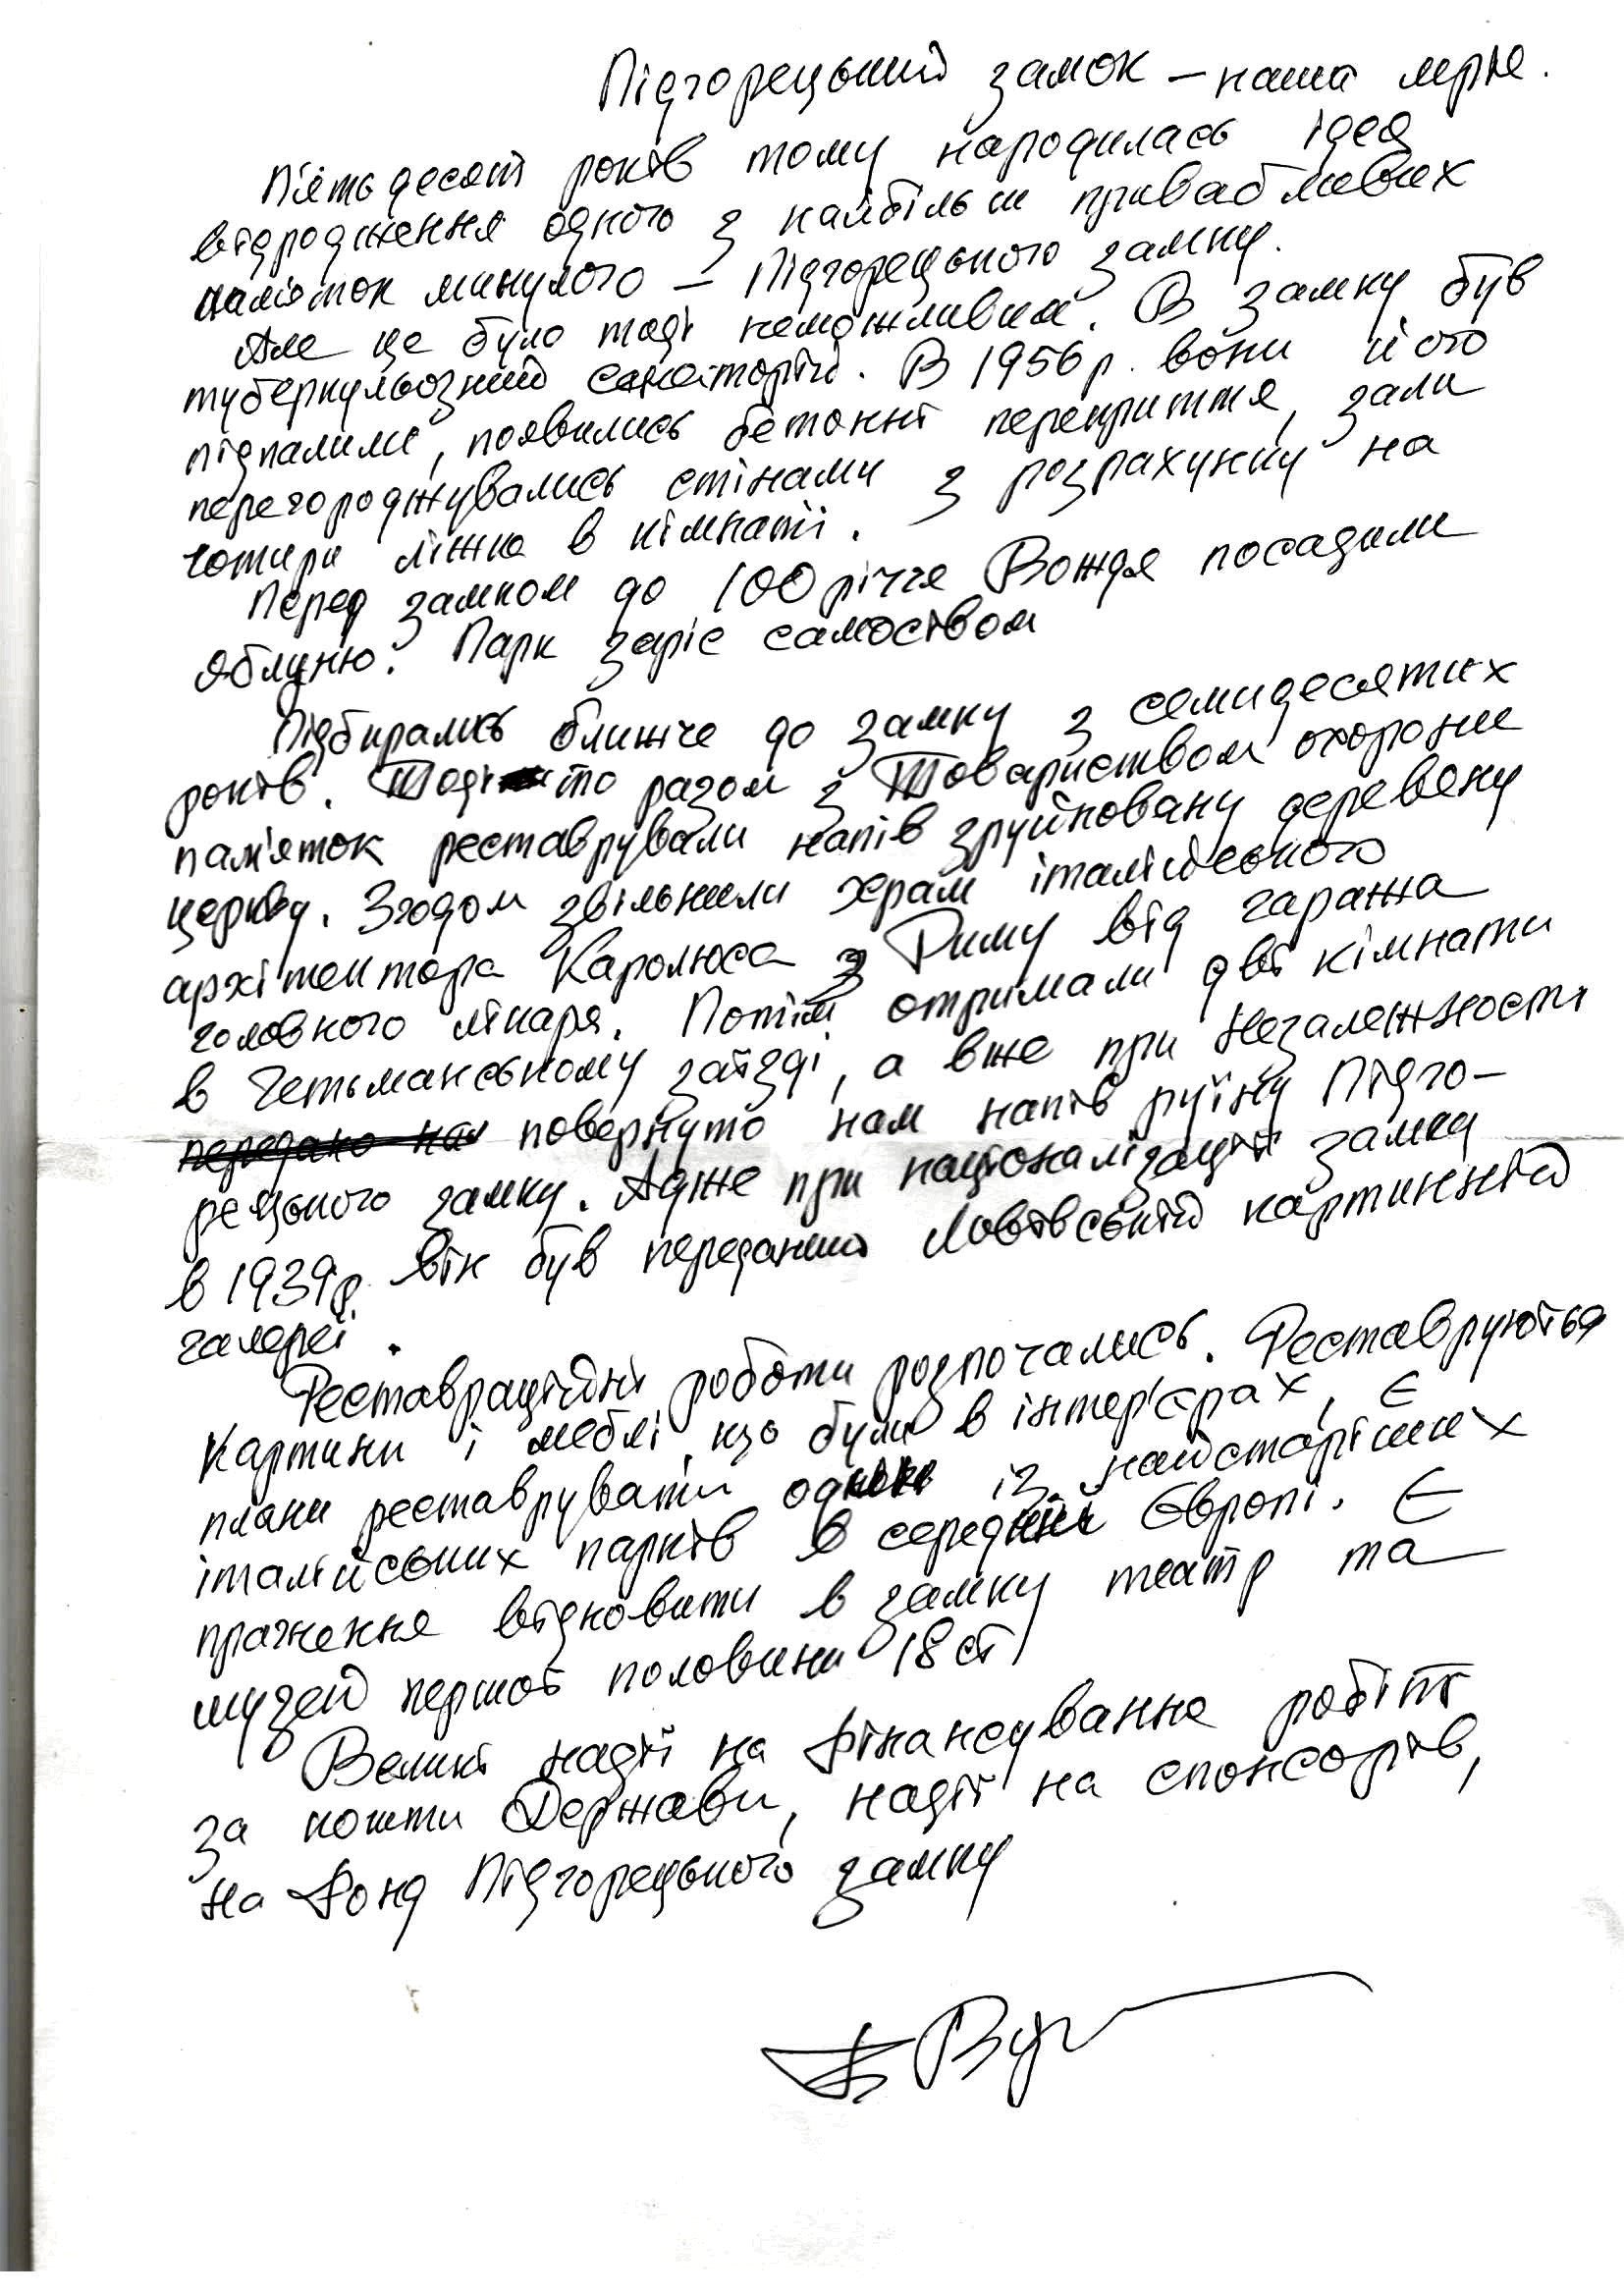 Підгорецький замок – наша мрія.
П'ятьдесят років тому народилась ідея
відродження одного з найбільш привабливих
пам'яток минулого – Підгорецького замку.
Але це було тоді неможливим. В замку був
туберкульозний санаторій. В 1956 р. вони його
підпалили, появились бетонні перекриття, зали
перегороджувались стінами з розрахунку на
чотири ліжка в кімнаті.
Перед замком до 100 річчя Вождя посадили
яблуню. Парк заріс самосівом
Підбирались ближче до замку з семидесятих
років. Тоді то разом з Товариством охорони
пам'яток реставрували напів зруйновану деревяну
церкву. Згодом звільнили храм італійського
архітектора Каролюса з Риму від гаража
головного лікаря. Потім отримали дві кімнати
в Гетьманському заїзді, а вже при Незалежності
передано нам повернуто нам напів руїну Підго-
рецького замку. Адже при націоналізації замку
в 1939р. він був переданий Львівській картинній
галереї.
Реставраційні роботи розпочались. Реставруються
картини і меблі, що були в інтер'єрах, є
плани реставрувати один із найстаріших
італійських парків в середній Європі. Є
прагнення відновити в замку театр та
музей першої половини 18 ст
Великі надії на фінансування робіт
за кошти Держави, надії на спонсорів,
на Фонд Підгорецького замку